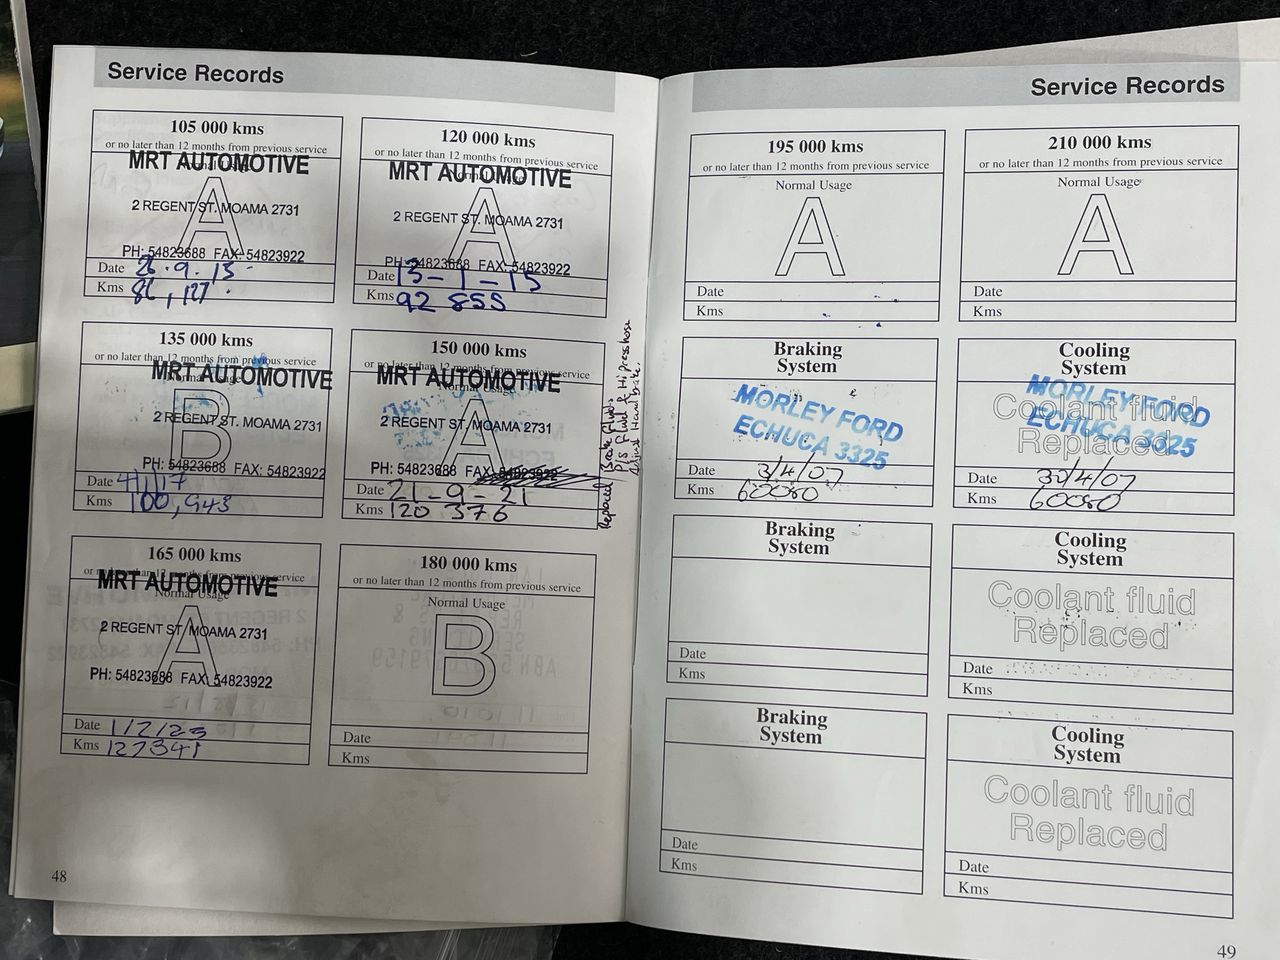 Service Records
105 000 kms
or no later than 12 months from previous service
Normal Usage
MRT AUTOMOTIVE
A
2 REGENT ST. MOAMA 2731
PH: 54823688 FAX: 54823922
Date 26.9.13
Kms 86,127.
120 000 kms
or no later than 12 months from previous service
Normal Usage
MRT AUTOMOTIVE
A
2 REGENT ST. MOAMA 2731
PH: 54823688 FAX: 54823922
Date 13-1-15
Kms 92 855
135 000 kms
or no later than 12 months from previous service
Normal Usage
MRT AUTOMOTIVE
B
2 REGENT ST. MOAMA 2731
PH: 54823688 FAX: 54823922
Date 4/1/17
Kms 100,943
150 000 kms
or no later than 12 months from previous service
Normal Usage
MRT AUTOMOTIVE
A
2 REGENT ST. MOAMA 2731
PH: 54823688 FAX: 54823922
Date 21-9-21
Kms 120 376
Replaced Brake fluid.
P/s fluid & Hi press hose
Adjust Hand brake.
165 000 kms
or no later than 12 months from previous service
Normal Usage
MRT AUTOMOTIVE
A
2 REGENT ST. MOAMA 2731
PH: 54823688 FAX: 54823922
Date 1/2/23
Kms 127341
180 000 kms
or no later than 12 months from previous service
Normal Usage
B
Date
Kms
48
Service Records
195 000 kms
or no later than 12 months from previous service
Normal Usage
A
Date
Kms
210 000 kms
or no later than 12 months from previous service
Normal Usage
A
Date
Kms
Braking
System
MORLEY FORD
ECHUCA 3325
Date 3/4/07
Kms 60080
Cooling
System
Coolant fluid
Replaced
MORLEY FORD
ECHUCA 3325
Date 30/4/07
Kms 60080
Braking
System
Date
Kms
Cooling
System
Coolant fluid
Replaced
Date
Kms
Braking
System
Date
Kms
Cooling
System
Coolant fluid
Replaced
Date
Kms
49